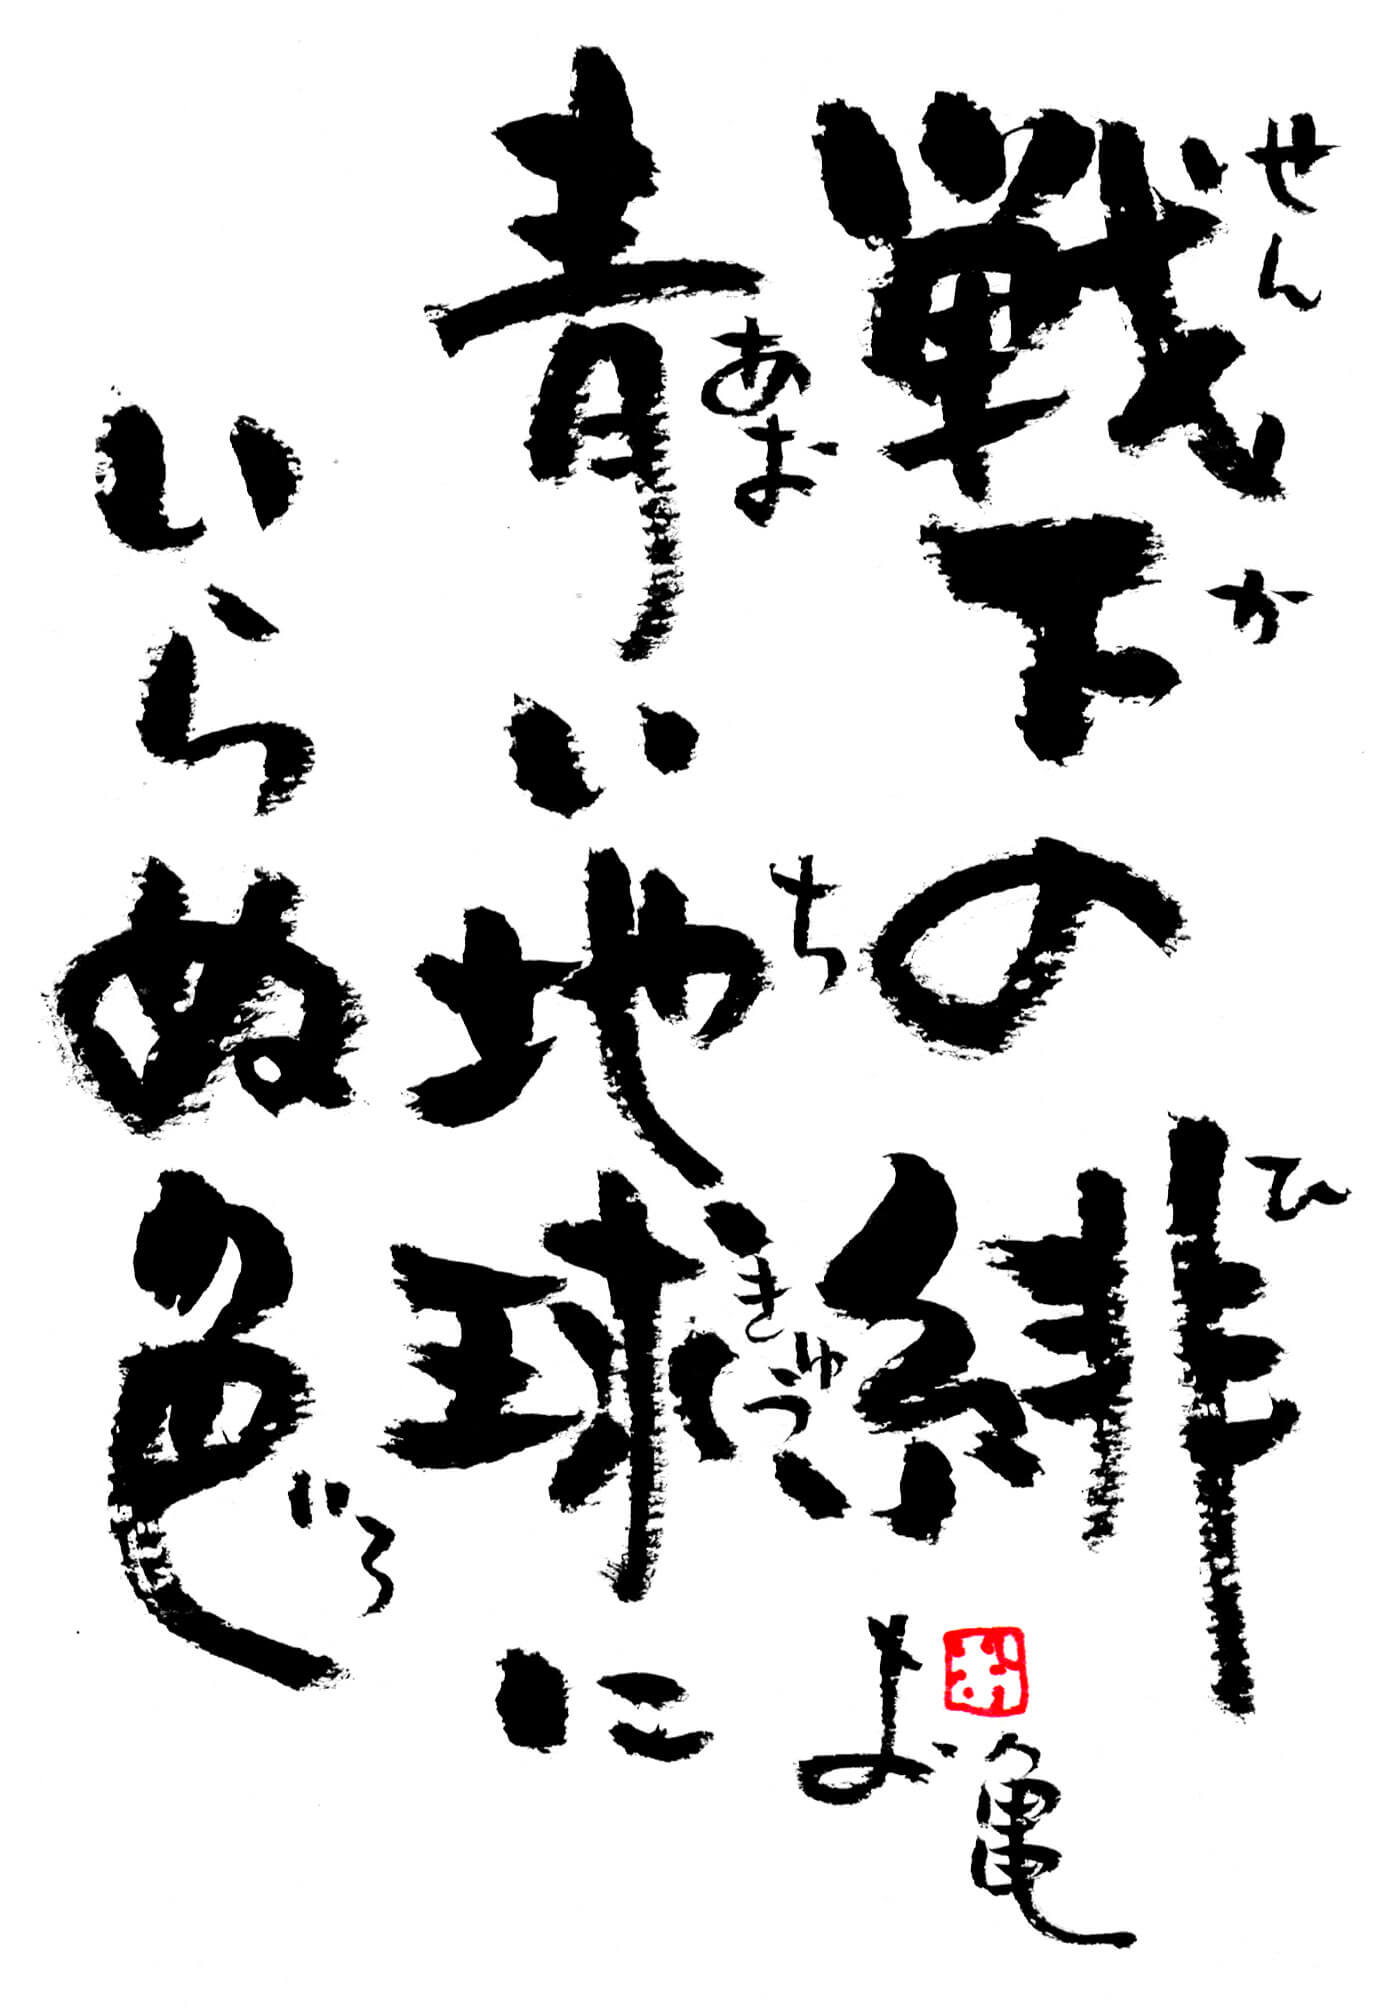 戦下の緋よ
せんか ひ
青い地球に
あお ちきゅう
いらぬ色
いろ
亀